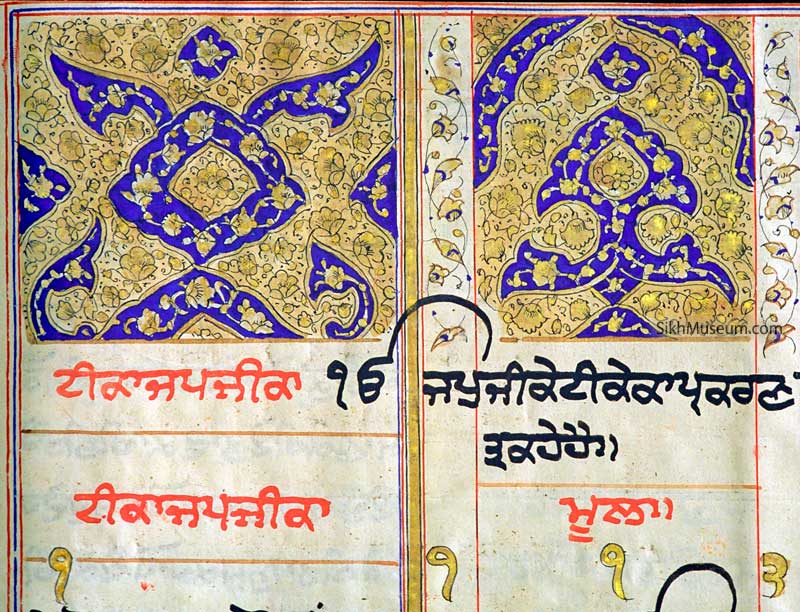 SikhMuseum.com
ਟੀਕਾਜਪਜੀਕਾ ੴ ਜਪੁਜੀਕੇਟੀਕੇਕਾਪ੍ਰਕਰਣ
ਟੀਕਾਜਪਜੀਕਾ
ਮੂਲ॥
੧ ੧ ੧ ੩